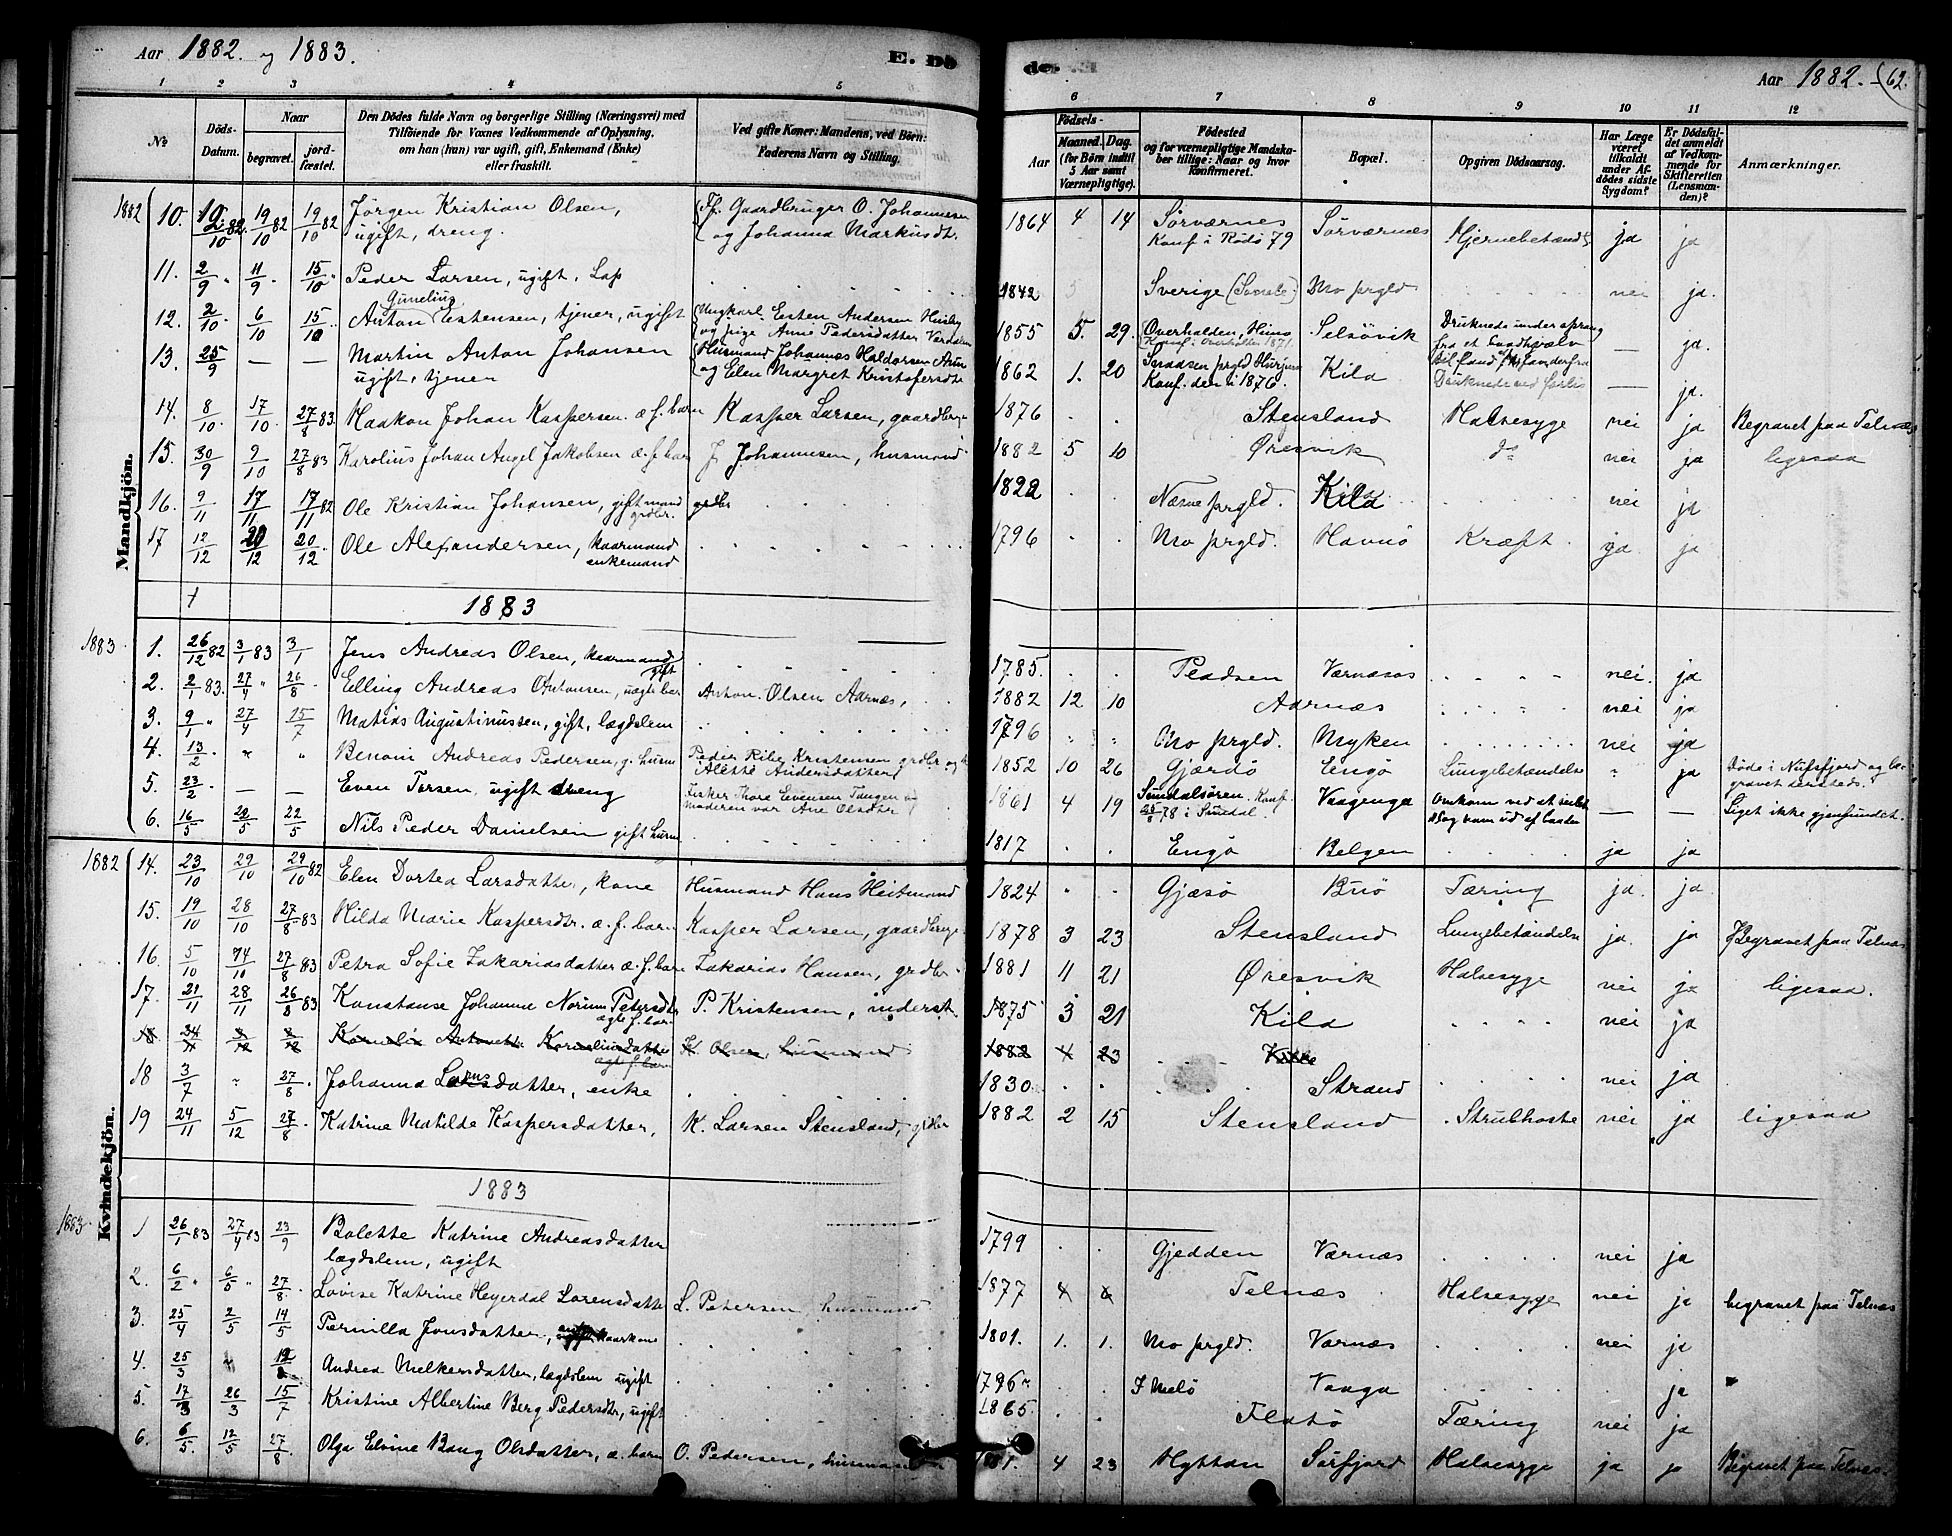 Aar 1882. og 1883. E. Dö
de. Aar 1882. 62.
1 2 3 4 5 6 7 8 9 10 11 12
No. Döds-Datum. Naar begravet. jordfæstet. Den Dödes fulde Navn og borgerlige Stilling (Næringsvei) med Tilföiende for Voxnes Vedkommende af Oplysning, om han (hun) var ugift, gift, Enkemand (Enke) eller fraskilt. Ved gifte Koner: Mandens, ved Börn: Faderens Navn og Stilling. Födsels- Aar Maaned. Dag. (for Börn indtil 5 Aar samt Værnepligtige). Födested og for værnepligtige Mandskaber tillige: Naar og hvor konfirmeret. Bopæl. Opgiven Dödsaarsag. Har Læge været tilkaldt under Afdödes sidste Sygdom? Er Dödsfaldet anmeldt af Vedkommende for Skifteretten (Lensmanden)? Anmærkninger.
Mandkjön.
1882 10. 19/10 82 19/10 82 Jörgen Kristian Olsen, ugift, dreng. Gaardbruger O. Johannesen og Johanna Markusdt. 1864 4 14 Sörværnes Konf. i Rödö 79 Sörværnes Hjernebetændt. ja ja
11. 2/9 11/9 15/10 Peder Larsen, ugift, Lap 1842 Sverige Mo prgld nei ja.
12. 2/10 6/10 15/10 Anton Gunelius Estensen, tjener, ugift Ungkarl Esten Andersen og pige Anne Pedersdatter 1855 5. 29. Overhalden, Selsövik Druknede under ja.
13. 25/9 — — Martin Anton Johansen ugift, tjener Husmand Johannes Haldorsen og Elen Margret Kristofersdt 1862 1. 20 Snaasen prgld Konf. der i 1876. Kila — ja.
14. 8/10 17/10 27/8 83. Haakon Johan Kaspersen æ. f. barn Kasper Larsen, gaardbrg. 1876 Stensland Halsesyge nei ja Begravet paa Telnæs
15. 30/9 9/10 27/8 83 Karolius Johan Angel Jakobsen æ. f. barn J. Johannesen, husmand 1882 5 10 Öresvik do nei ja ligesaa
16. 9/11 17/11 17/11 82 Ole Kristian Johansen, gift mand grdbr. 1822 Næsne prgld. Kila nei ja
17 12/12 20/12 20/12 Ole Alexandersen, kaarmand enkemand 1796 Mo prgld. Havnö Kræft. ja ja
1883
1883 1. 26/12 82 3/1 83 3/1 Jens Andreas Olsen, kaarmand gift 1785. Værnæs nei. ja
2. 2/1 83. 27/4 26/8 Elling Andreas Antonsen, uægte bar Anton Olsen Aarnæs, 1882 12 10 Aarnæs nei ja
3. 9/1 27/4 15/7 Matias Augustinussen, gift, lægdslem 1796 Mo prgld. Myken nei ja
4. 13/2 " " Benoni Andreas Pedersen, g. husm Peder Kristensen grdbr og Andersdatter 1852 10 26 Gjærdö Engö Lungebetændelse " ja Döde i Nufsfjord og begravet dersteds.
5. 23/2 — — Even Torsen, ugift dreng Fisker Thore Evensen Tangen og moderen var Ane Olsdtr 1861 4 19 Sundalsören. Konf. 78 i Sundal. Vaagenga Omkom ved — — Liget ikke gjenfundet.
6. 16/5 22/5 22/5 Nils Peder Danielsen gift husm 1817 Engö Belgen ja ja
Kvindekjön.
1882 14. 23/10 29/10 29/10 82 Elen Dortea Larsdatter, kone Husmand Hans Heitmand 1824 Gjæsö Buö Tæring ja ja.
15. 19/10 28/10 27/8 83 Hilda Marie Kaspersdtr. æ. f. barn Kasper Larsen, gaardbrger 1878 3 23 Stensland Lungebetændelse ja. ja Begravet paa Telnæs
16. 5/10 14/10 27/8 83 Petra Sofie Zakariasdatter æ. f. barn Zakarias Hansen, grdbr. 1881 11 21 Öresvik Halsesyge nei ja ligesaa.
17. 21/11 28/11 26/8 83 Konstanse Johanna Norum Petersdtr ægte f. barn P. Kristensen, inderst 1875 3 21 Kila nei ja
18 Kornelia Antonette Korneliusdatter ægte f. barn K. Olsen, husmand 1882 4 23
18 3/7 " 27/8 Johanna Larsdatter, enke 1830 Strand nei ja
19 24/11 5/12 27/8 Katrine Matilde Kaspersdatter, K. Larsen Stensland, grdbr 1882 2 15 Stensland Strubhoste nei ja ligesaa
1883
1883 1 26/1 83 27/4 83 23/9 Bolette Katrine Andreasdatter lægdslem, ugift 1799 Gjedden Værnæs nei ja
2. 6/2 6/5 27/8 Lovise Katrine Heyerdal Lorensdatter L. Petersen, husmand 1877 Telnæs Halsesyge nei ja begravet paa Telnæs
3. 25/4 2/5 14/5 Pernilla Jonsdatter, kaarkone 1801. 1. 1. Mo prgld. Værnæs nei ja
4. 25/3 Andrea Melkersdatter, lægdslem ugift 1796 Melö Vaaga ja
5. 17/3 26/3 15/7 Kristine Albertine Berg Pedersdtr, ugift 1865. Flatö Tæring nei ja
6. 6/5 12/5 27/8 Olga Elvine Bang Olsdatter, æ. barn O. Pedersen, husmand 4 23 Hyttan Sörfjord Halsesyge ja ja Begravet paa Telnæs.